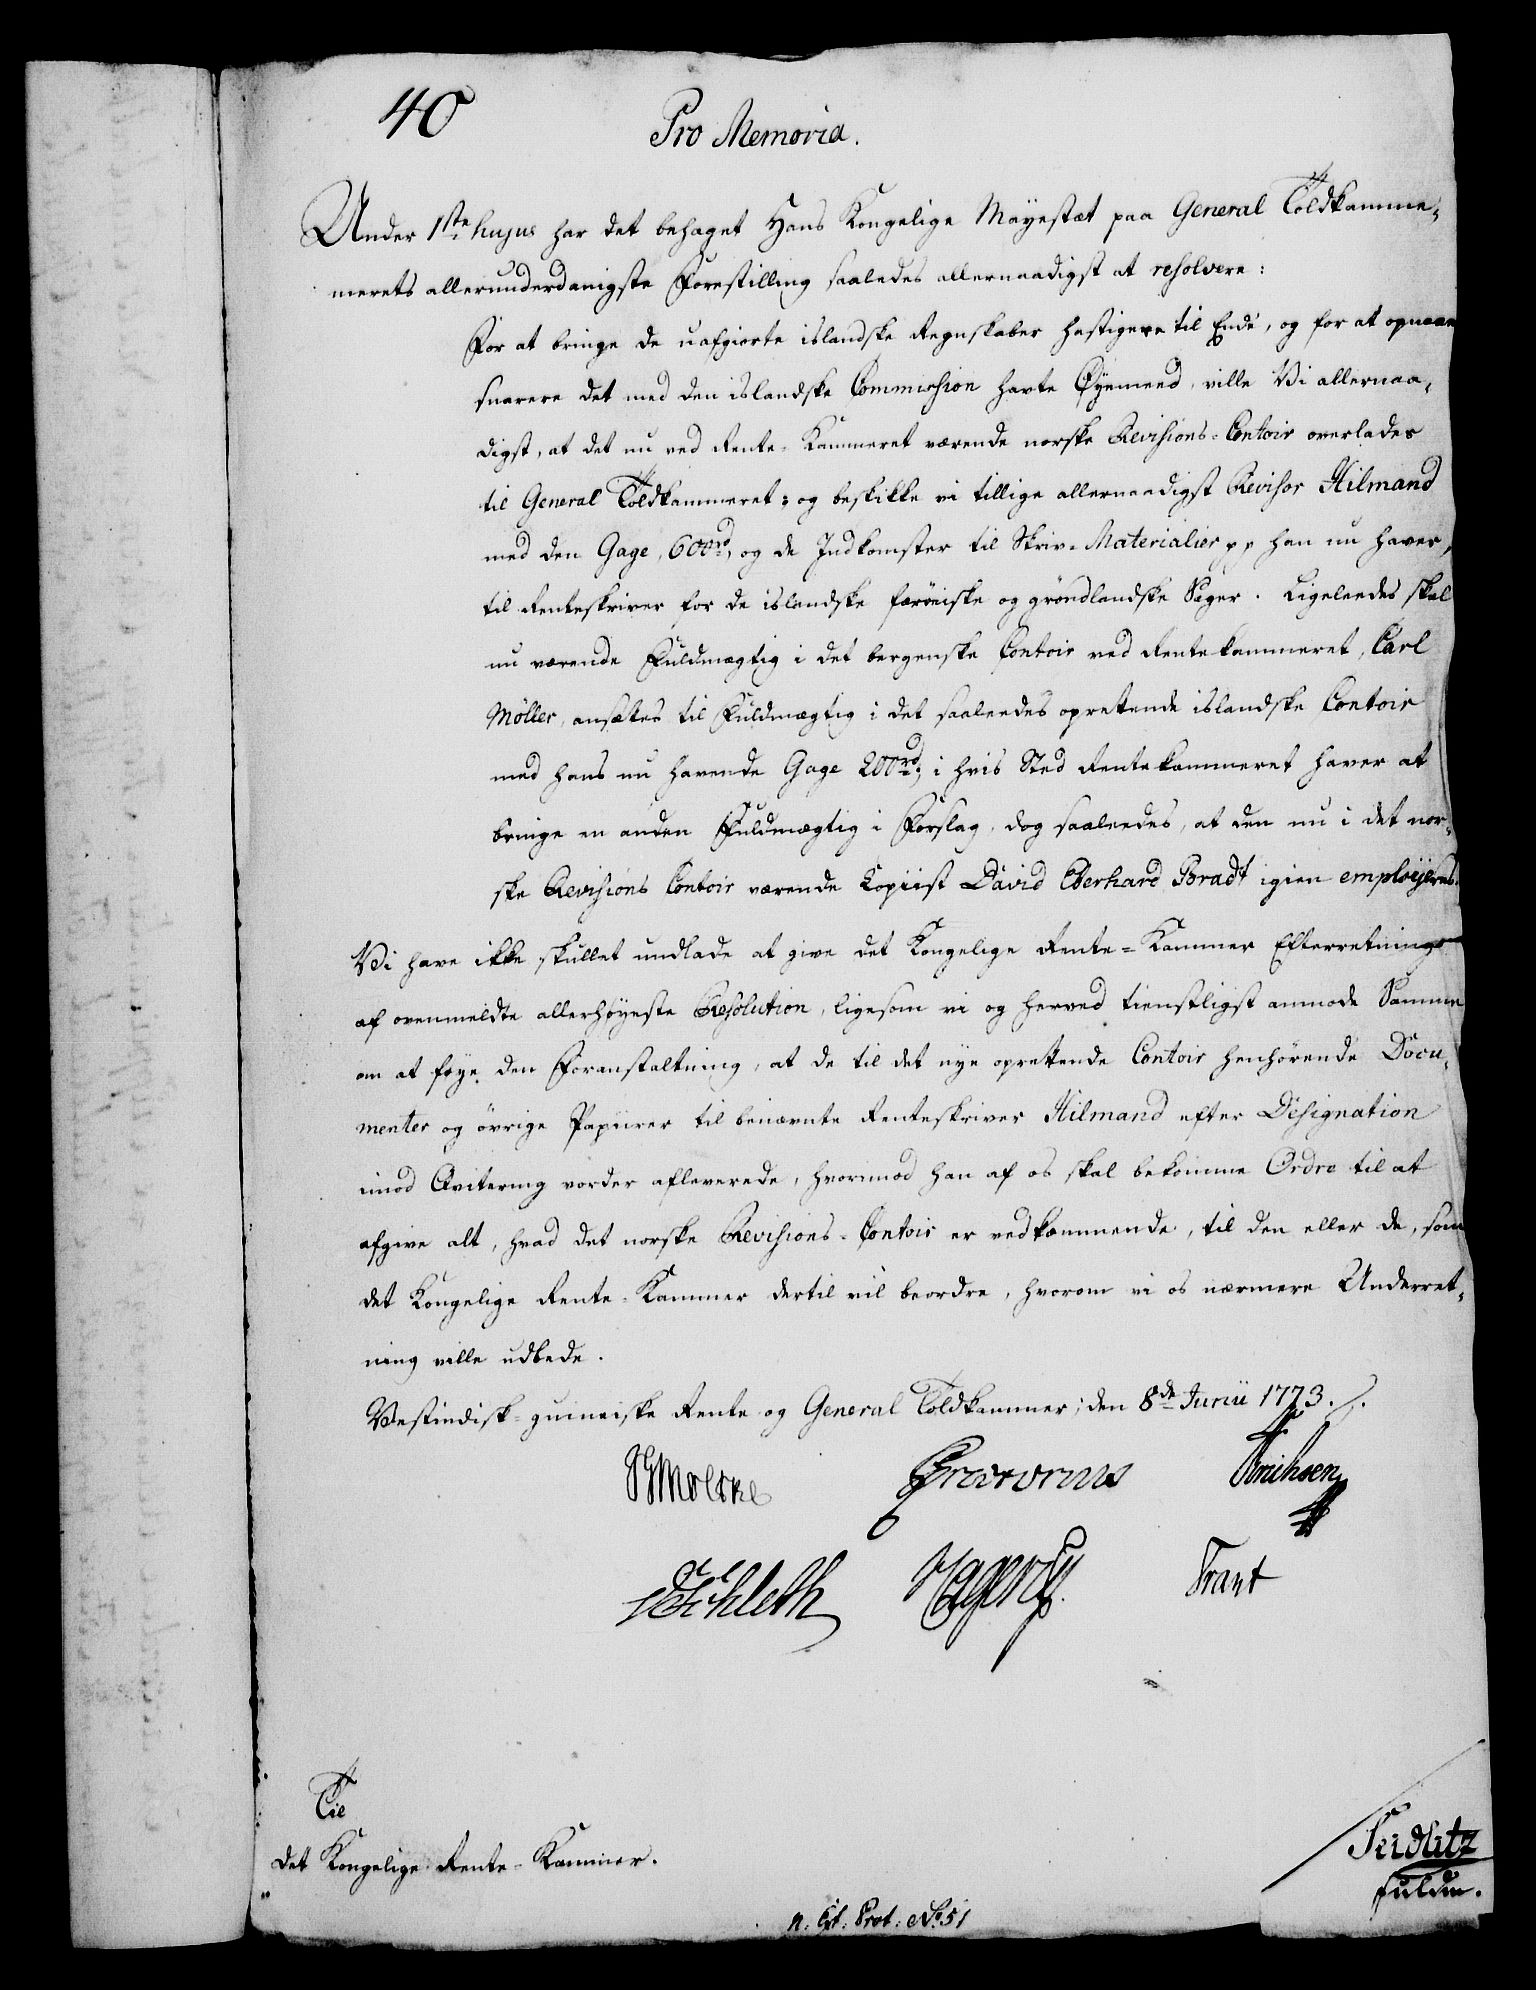 40
Pro Memoria.
Under 1ste hujus har det behaget Hans Kongelige Mayestæt paa General Toldkamme-
merets allerunderdanigste Forestilling saaledes allernaadigst at resolvere:
For at bringe de uafgiorte islandske Regnskaber hastigere til Ende, og for at opnaae
snarere det med den islandske Commission havte Øyemeed, ville Vi allernaa-
digst, at det nu ved Rente-Kammeret værende norske Revisions-Contoir overlades
til General Toldkammeret; og beskikke vi tillige allernaadigst Revisor Hilmand
med den Gage, 600rd, og de Indkomster til Skriv-Materialier pp han nu haver,
til Renteskriver for de islandske færøiske og grøndlandske Sager. Ligeleedes skal
nu værende Fuldmægtig i det bergenske Contoir ved Rentekammeret, Carl
Møller, ansættes til Fuldmægtig i det saaleedes oprettende islandske Contoir
med hans nu havende Gage 200rd; i hvis Sted Rentekammeret haver at
bringe en anden Fuldmægtig i Forslag, dog saaleedes, at den nu i det nor-
ske Revisions Contoir værende Copiist David Eberhard Bradt igien employeres.
Vi have ikke skullet undlade at give det Kongelige Rente-Kammer Efterretning
af ovenmeldte allerhøyeste Resolution, ligesom vi og herved tienstligst anmode Samme
om at føye den Foranstaltning, at de til det nye oprettende Contoir henhørende Docu-
menter og øvrige Papiirer til benævnte Renteskriver Hilmand efter Designation
imod Qvitering vorder afleverede, hvorimod han af os skal bekomme Ordre til at
afgive alt, hvad det norske Revisions-Contoir er vedkommende, til den eller de, som
det Kongelige Rente-Kammer dertil vil beordre, hvorom vi os nærmere Underret-
ning ville udbede.
Vestindisk-guineiske Rente og General Toldkammer, den 8de Junii 1773.
Moltke Prætorius Erichsen
Schleth Hagerup Trant
Til
det Kongelige Rente-Kammer.
Seidlitz
fuldm.
N: Ext: Prot: No 51